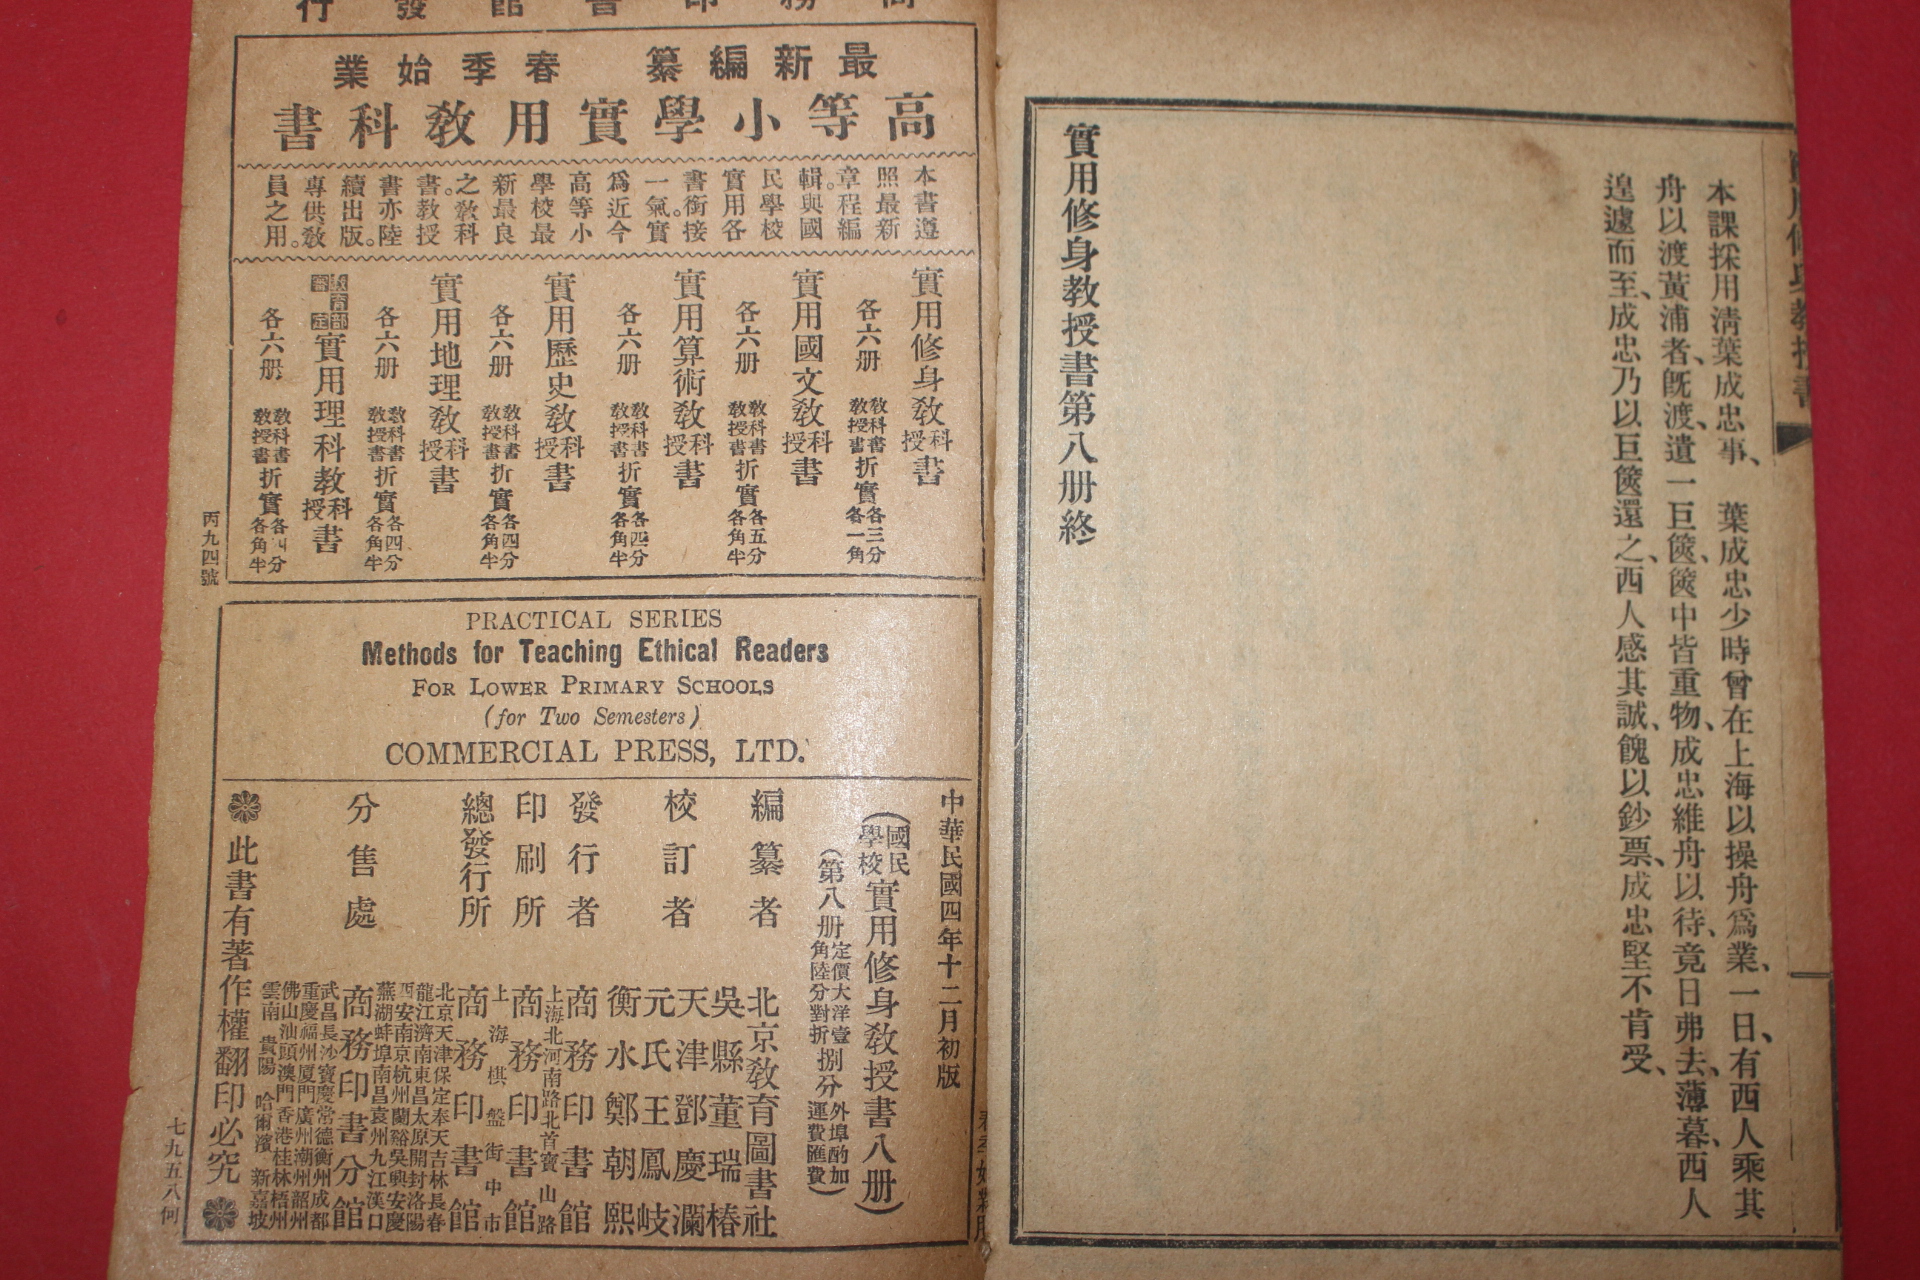 實用修身教授書
本課採用清葉成忠事、葉成忠少時曾在上海以操舟爲業、一日、有西人乘其
舟以渡黃浦者、旣渡、遺一巨篋、篋中皆重物、成忠維舟以待、竟日弗去、薄暮、西人
遑遽而至、成忠乃以巨篋還之、西人感其誠、餽以鈔票、成忠堅不肯受、
實用修身教授書第八册終
商務印書館發行
最新編纂 春季始業
高等小學實用敎科書
本書遵
照最新
章程編
輯。與國
民學校
實用各
書銜接
一氣。實
爲近今
高等小
學校最
新最良
之敎科
書。教授
書亦陸
續出版。
專供敎
員之用。
實用修身敎科授書
各六册 敎科書敎授書折實各三分各一角
實用國文敎科授書
各六册 敎科書敎授書折實各五分各角半
實用算術敎科授書
各六册 敎科書敎授書折實各四分各角半
實用歷史敎科授書
各六册 敎科書敎授書折實各四分各角半
實用地理敎科授書
各六册 敎科書敎授書折實各四分各角半
教育部審定實用理科教科授書
各六册 敎科書敎授書折實各四分各角半
丙九四號
PRACTICAL SERIES
Methods for Teaching Ethical Readers
FOR LOWER PRIMARY SCHOOLS
(for Two Semesters)
COMMERCIAL PRESS, LTD.
中華民國四年十二月初版
(國民學校實用修身敎授書八册)
(第八册定價大洋壹角陸分對折捌分外埠酌加運費匯費)
編纂者 北京敎育圖書社
吳縣董瑞椿
校訂者 天津鄧慶瀾
元氏王鳳岐
衡水鄭朝熙
發行者 商務印書館
印刷所 上海北河南路北首寶山路
商務印書館
總發行所 上海棋盤街中市
商務印書館
分售處 北京天津保定奉天吉林長春
龍江濟南東昌太原開封洛陽
西安南京杭州蘭谿吳興安慶
蕪湖蚌埠南昌袁州九江漢口
商務印書分館
武昌長沙寶慶常德衡州成都
重慶福州厦門廣州潮州韶州
佛山汕頭澳門香港桂林梧州
雲南 貴陽 哈爾濱 新嘉坡
此書有著作權翻印必究
七九五八何